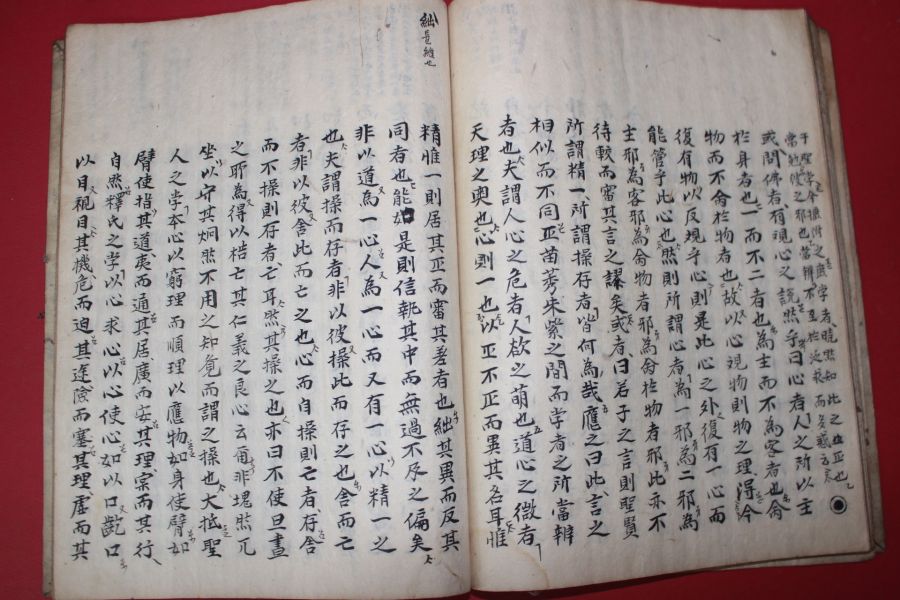 或問佛者有觀心之說然乎曰心者人之所以主
於身者也一而不二者也為主而不為客者也命
物而不命於物者也故以心觀物則物之理得今
復有物以反觀乎心則是此心之外復有一心而
能管乎此心也然則所謂心者為一邪為二邪為
主邪為客邪為命物者邪為命於物者邪此亦不
待較而審其言之謬矣或者曰若子之言則聖賢
所謂精一所謂操存者皆何為哉應之曰此言之
相似而不同正苗莠朱紫之間而學者之所當辨
者也夫謂人心之危者人欲之萌也道心之微者
天理之奧也心則一也以正不正而異其名耳惟
絀
精惟一則居其正而審其差者也絀其異而反其
同者也能如是則信執其中而無過不及之偏矣
非以道為一心人為一心而又有一心以精一之
也夫謂操而存者非以彼操此而存之也舍而亡
者非以彼舍此而亡之也心而自操則亡者存舍
而不操則存者亡耳然其操之也亦曰不使旦晝
之所為得以梏亡其仁義之良心云爾非塊然兀
坐以守其炯然不用之知覺而謂之操也大抵聖
人之學本心以窮理而順理以應物如身使臂如
臂使指其道夷而通其居廣而安其理實而其行
自然釋氏之學以心求心以心使心如以口齕口
以目視目其機危而迫其途險而塞其理虛而其